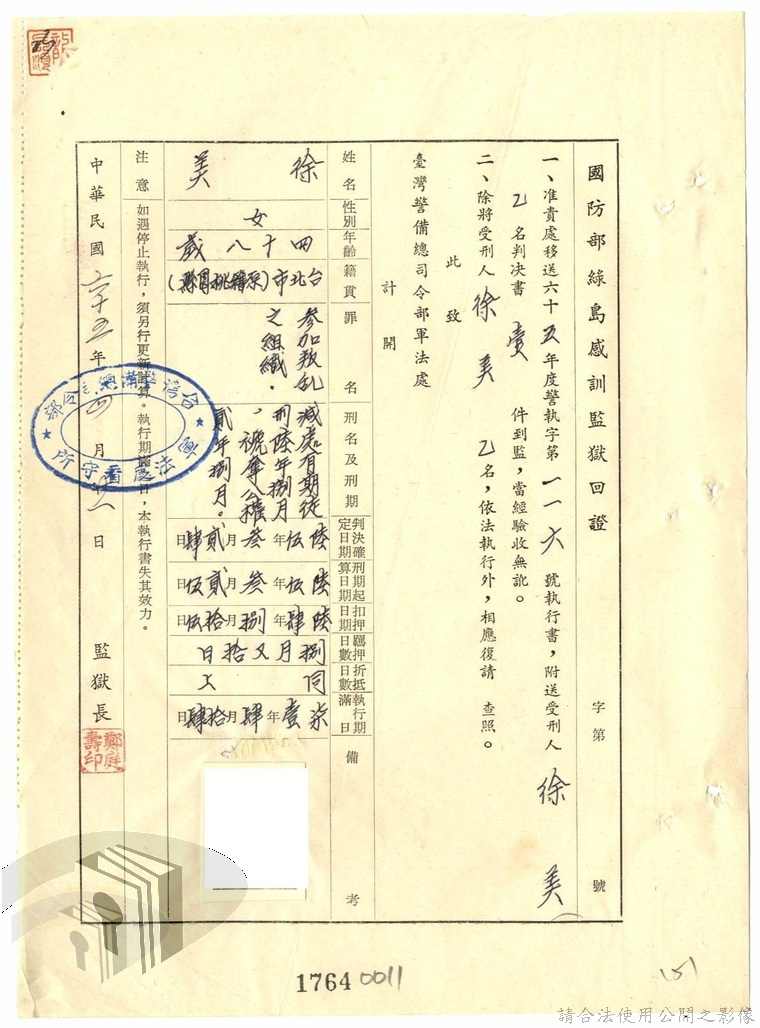 國防部綠島感訓監獄回證　字第　號
一、准貴處移送六十五年度警執字第一一六號執行書，附送受刑人徐　美
乙名判决書壹件到監，當經驗收無訛。
二、除將受刑人徐　美乙名，依法執行外，相應復請　查照。
此致
臺灣警備總司令部軍法處
計開
姓名　徐　美
性別　女
年齡　四十八歲
籍貫　台北市(原籍桃園縣)
罪名　參加叛乱之組織.
刑名及刑期　減處有期徒刑陸年捌月，褫奪公權貳年捌月。
判決確定日期　陸伍年叁月貳肆日
刑期起算日期　陸伍年叁月貳伍日
扣押日期　陸肆年捌月拾伍日
羈押日數　捌月又拾日
折抵日數　同上
執行期滿日　柒壹年肆月拾肆日
備考
注意　如遇停止執行，須另行更新計算。執行期滿日，本執行書失其效力。
中華民國六十五年四月　日　監獄長
鄭庭壽印
台灣警備總司令部
軍法處看守所
1764 0011
(5)
請合法使用公開之影像